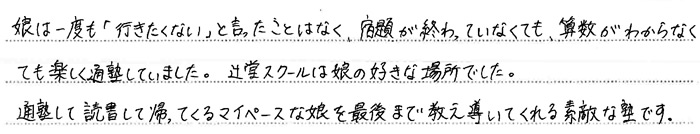 娘は一度も「行きたくない」と言ったことはなく、宿題が終わっていなくても、算数がわからなく
ても楽しく通塾していました。辻堂スクールは娘の好きな場所でした。
通塾して読書して帰ってくるマイペースな娘を最後まで教え導いてくれる素敵な塾です。